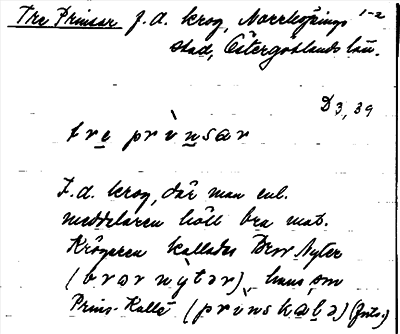 Tre Prinsar f.d. krog, Norrköpings 1-2
stad, Östergötlands län.
D 3, 39
tre prìnsar
F.d. krog, där man enl.
meddelaren höll bra mat.
Krögaren kallades Bror Nyter
(brọr nỳtər), hans son
Prins-Kalle (prìnskalə)